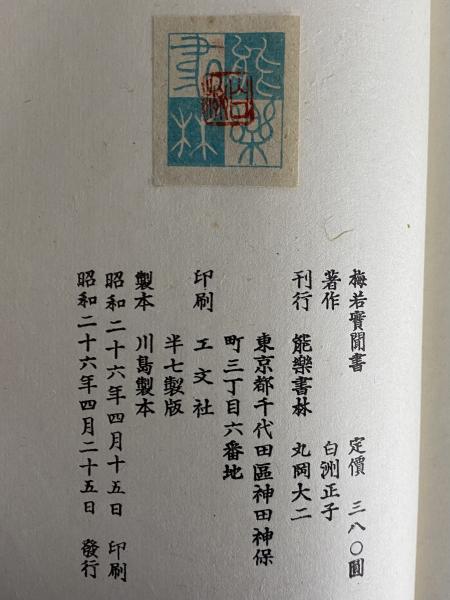 能樂書林
梅若實聞書　定價　三八〇圓
著作　白洲正子
刊行　能樂書林　丸岡大二
東京都千代田區神田神保
町三丁目六番地
印刷　工文社
半七製版
製本　川島製本
昭和二十六年四月十五日　印刷
昭和二十六年四月二十五日　發行